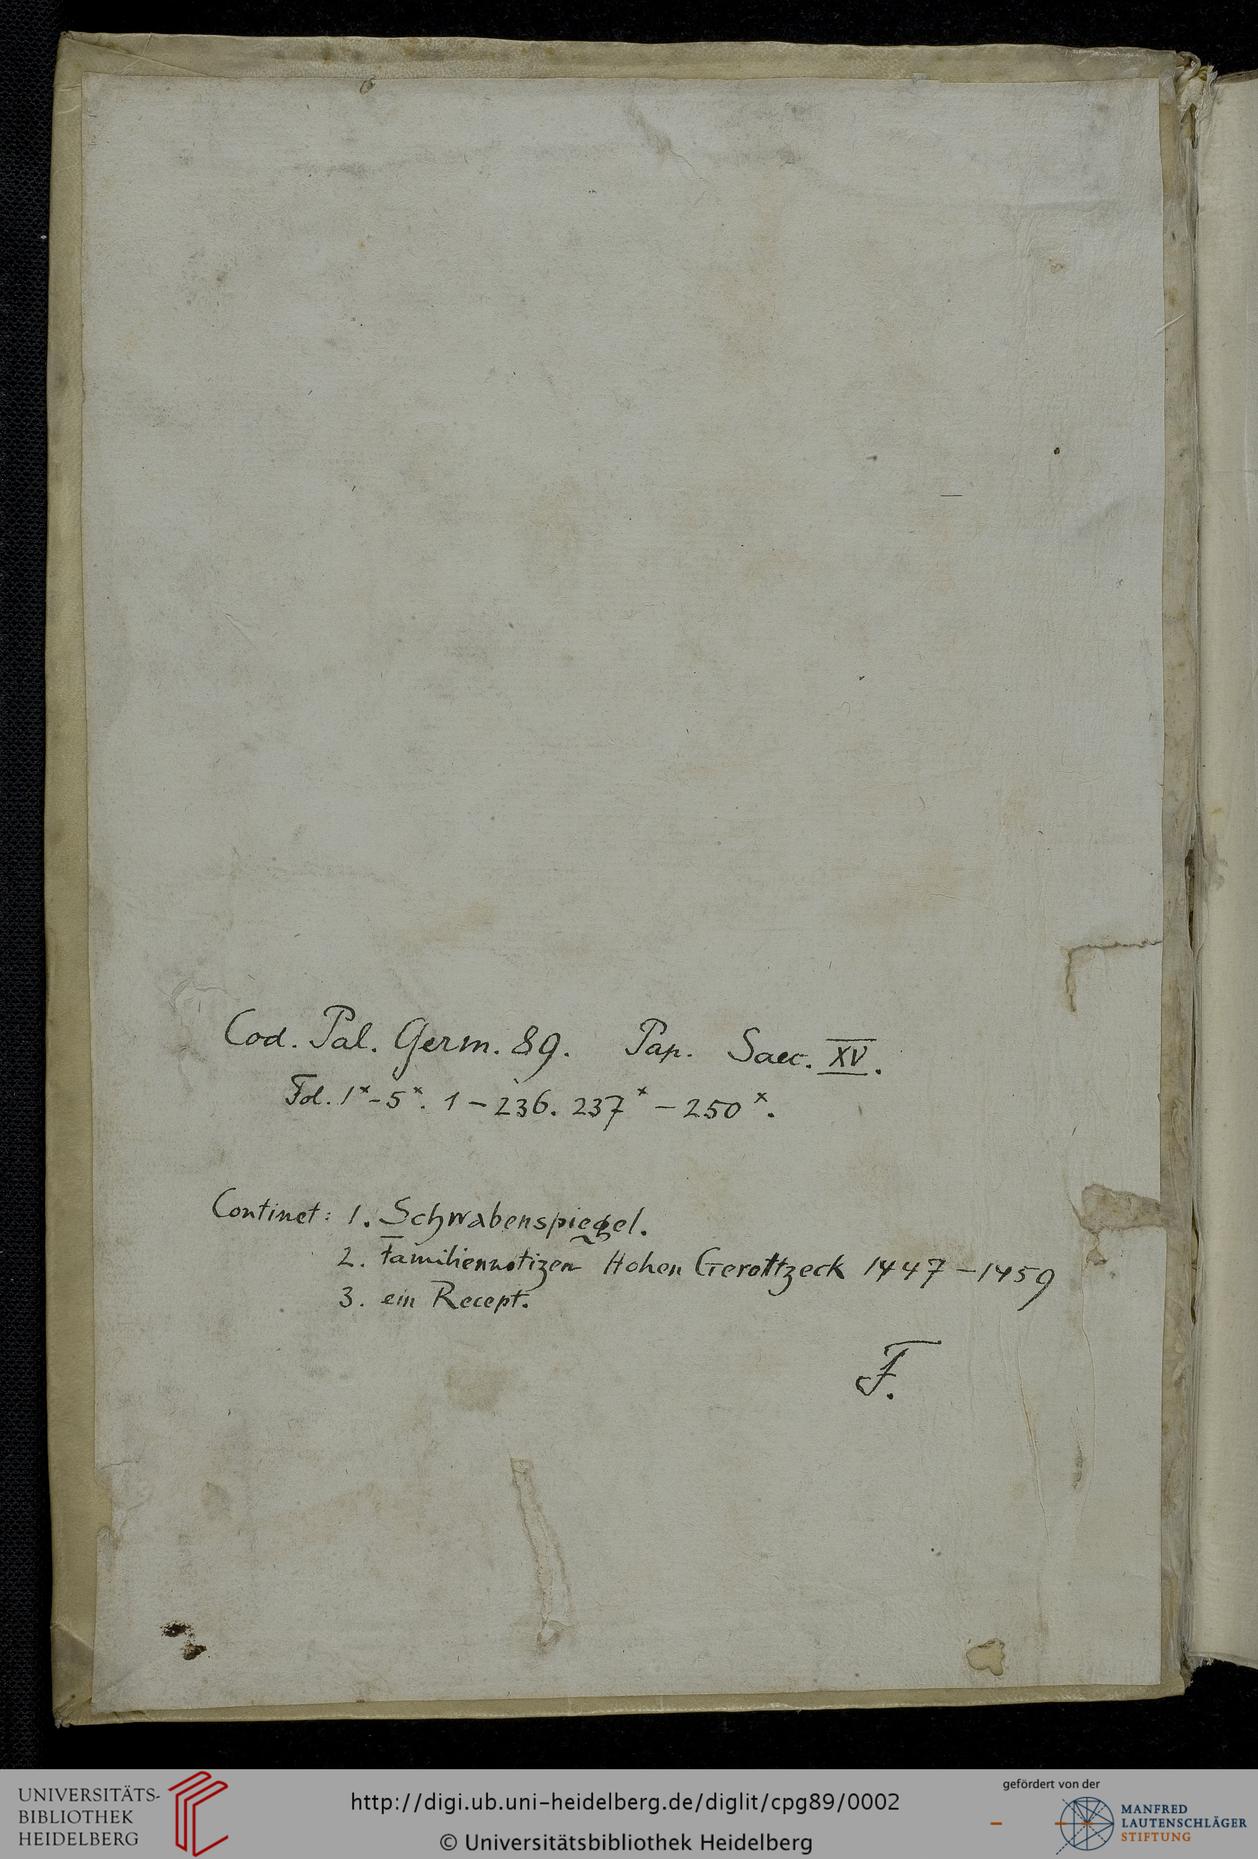 Cod. Pal. Germ. 89. Pap. Saec. XV.
Fol. 1*-5*. 1-236. 237*-250*.
Continet: 1. Schwabenspiegel.
2. Familiennotizen Hohen Gerottzeck 1447-1459
3. ein Recept.
F.
UNIVERSITÄTS-
BIBLIOTHEK
HEIDELBERG
http://digi.ub.uni-heidelberg.de/diglit/cpg89/0002
© Universitätsbibliothek Heidelberg
gefördert von der
MANFRED
LAUTENSCHLÄGER
STIFTUNG